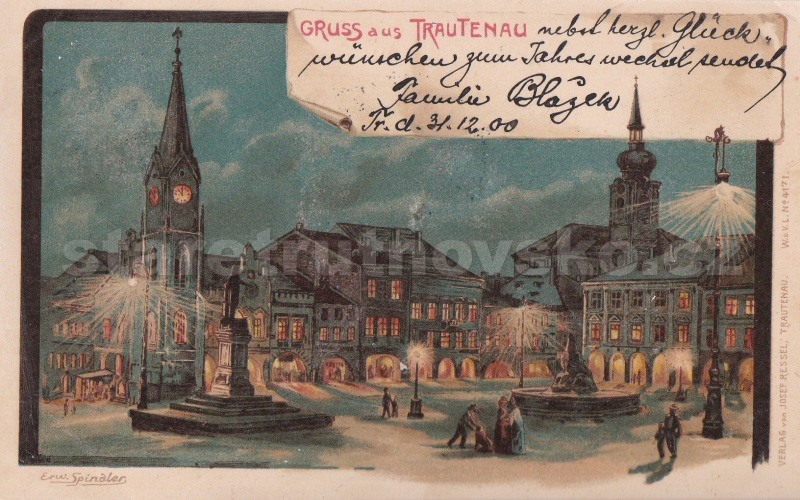 GRUSS aus TRAUTENAU nebst herzl. Glück-
wünschen zum Jahreswechsel sendet
Familie Blažek
Tr. d. 31.12.00
staretrutnovsko.cz
Erw. Spindler.
VERLAG von JOSEF RESSEL, TRAUTENAU. W.o.V.L. No 4171.